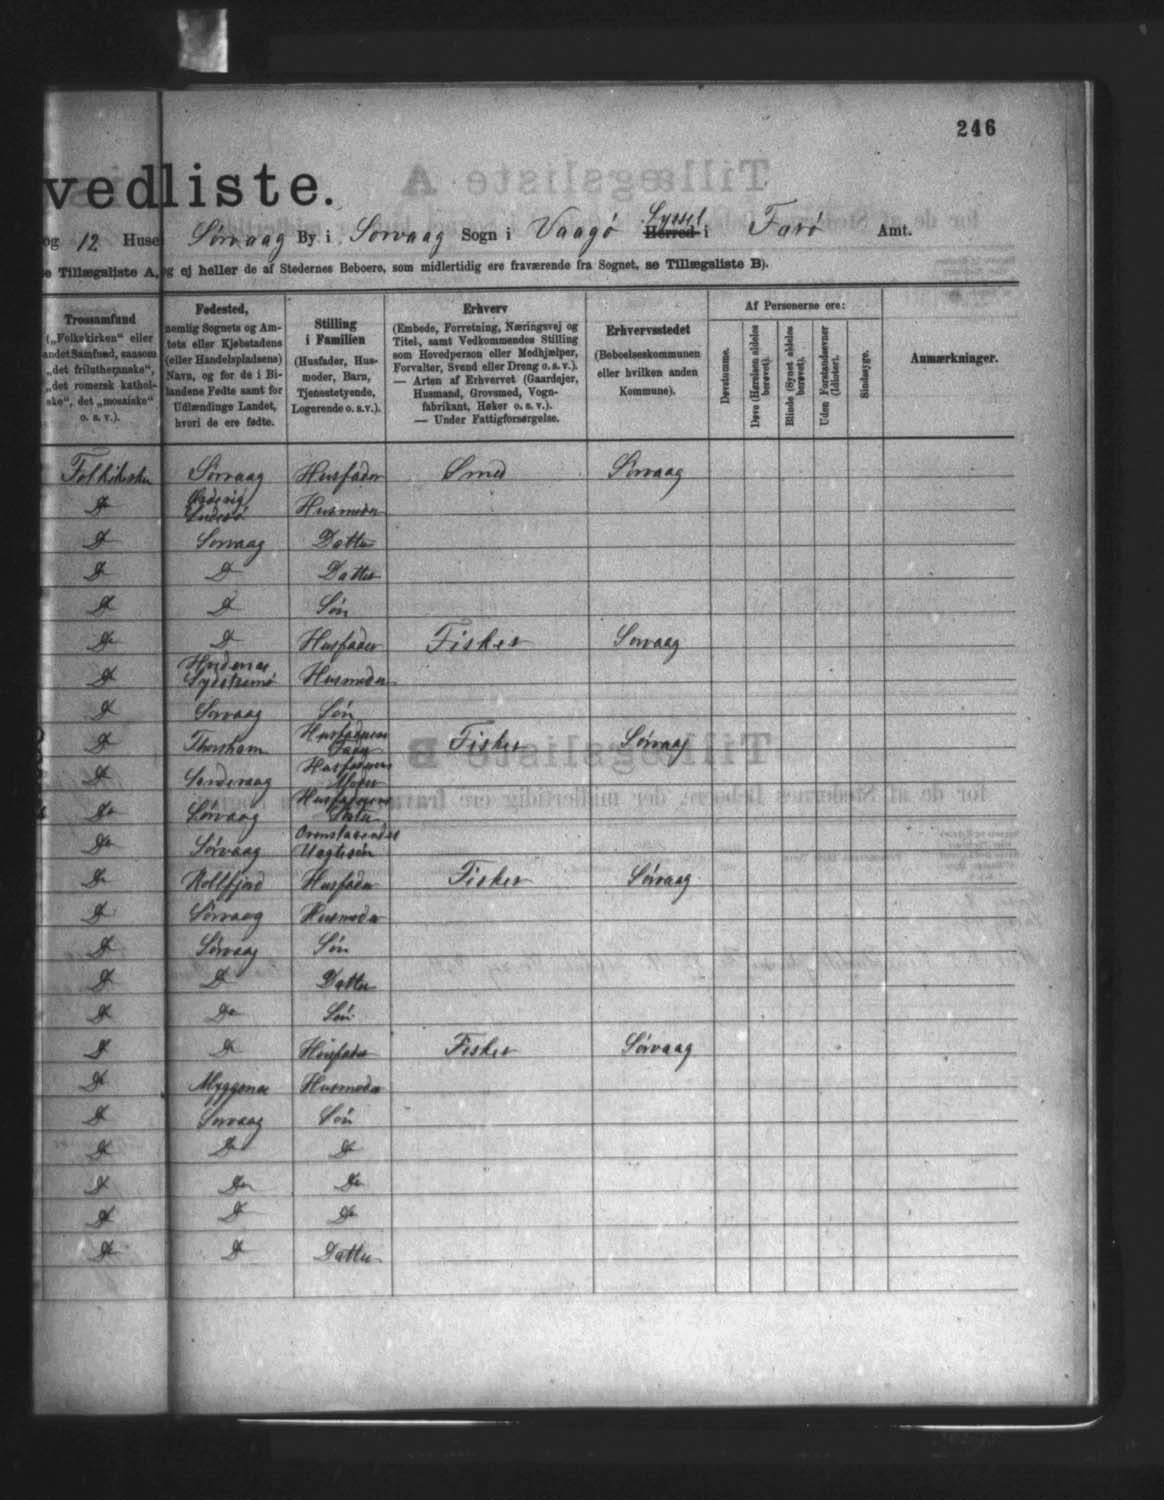 246
vedliste.
og 12 Huse Sørvaag By i Sørvaag Sogn i Vaagø Syssel Herred i Færø Amt.
e Tillægsliste A, og ej heller de af Stedernes Beboere, som midlertidig ere fraværende fra Sognet, se Tillægsliste B).
Trossamfund
(„Folkekirken“ eller
andet Samfund, saasom
„det frilutheranske“,
„det romersk kathol-
ske“, det „mosaiske“
o. s. v.).
Fødested,
nemlig Sognets og Am-
tets eller Kjøbstadens
(eller Handelspladsens)
Navn, og for de i Bi-
landene Fødte samt for
Udlændinge Landet,
hvori de ere fødte.
Stilling
i Familien
(Husfader, Hus-
moder, Barn,
Tjenestetyende,
Logerende o. s. v.).
Erhverv
(Embede, Forretning, Næringsvej og
Titel, samt Vedkommendes Stilling
som Hovedperson eller Medhjælper,
Forvalter, Svend eller Dreng o. s. v.).
— Arten af Erhvervet (Gaardejer,
Husmand, Grovsmed, Vogn-
fabrikant, Høker o. s. v.).
— Under Fattigforsørgelse.
Erhvervsstedet
(Beboelseskommunen
eller hvilken anden
Kommune).
Af Personerne ere:
Døvstumme.
Døve (Hørelsen aldeles
berøvet).
Blinde (Synet aldeles
berøvet).
Uden Forstandsevner
(Idioter).
Sindssyge.
Anmærkninger.
Folkekirken Sørvaag Husfader Smed Sørvaag
Do Husmoder
Do Sørvaag Datter
Do Do Datter
Do Do Søn
Do Do Husfader Fisker Sorvaag
Do Husmoder
Do Sorvaag Søn
Do Thorshavn Husfaderens Fisker Sørvaag
Do Sandevaag Husfaderens Moder
Do Sørvaag Husfaderens
Do Sørvaag
Do Kollfjord Husfader Fisker Sørvaag
Do Sørvaag Husmoder
Do Sørvaag Søn
Do Do Datter
Do Do Søn
Do Do Husfader Fisker Sørvaag
Do Myggenæs Husmoder
Do Sorvaag Søn
Do Do Do
Do Do Do
Do Do Do
Do Do Datter